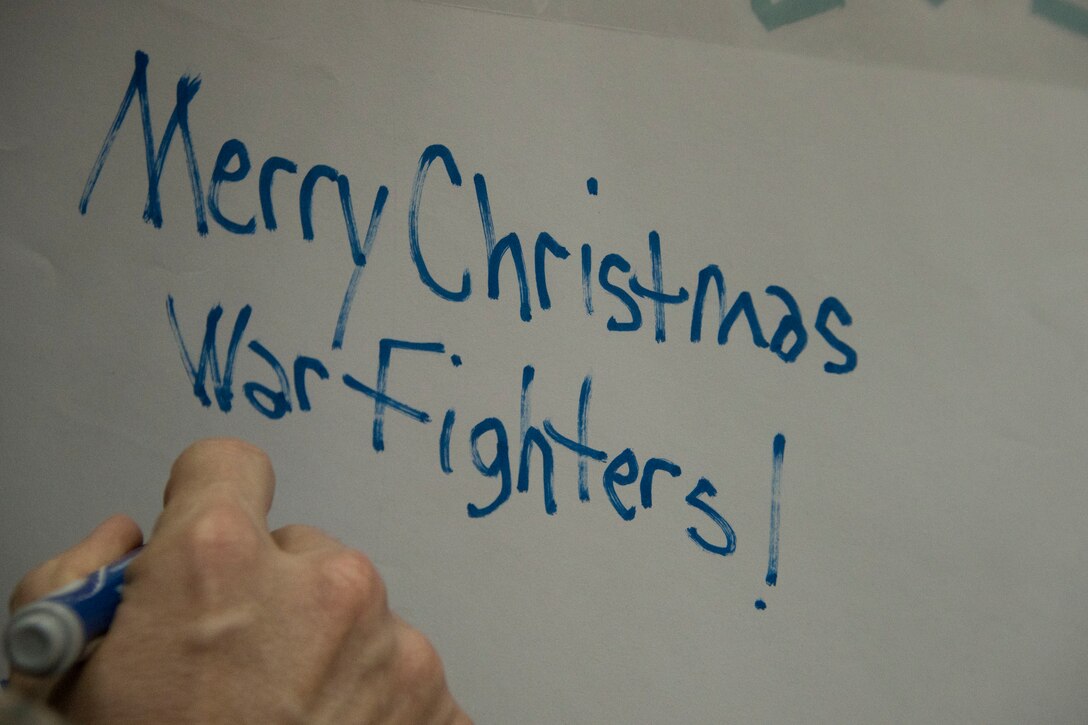 Merry Christmas
War Fighters!